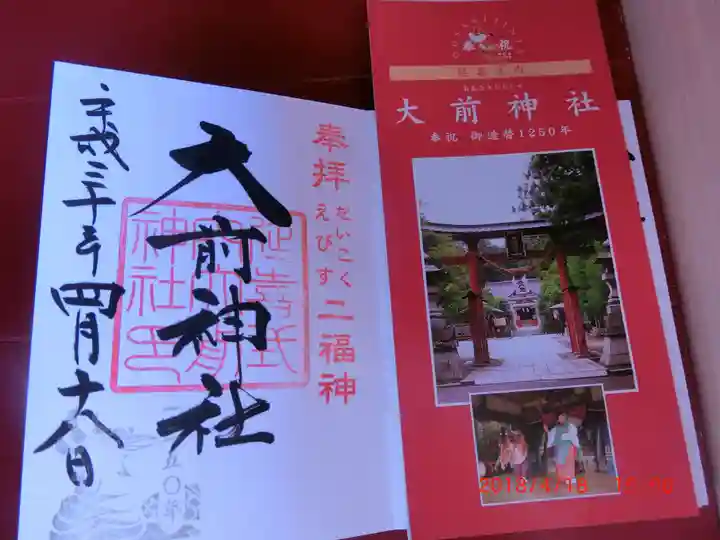 奉拝
だいこく
えびす
二福神
大前神社
平成三十年四月十八日
五〇年
奉祝
大前神社
奉祝 御造替1250年
2018/4/18